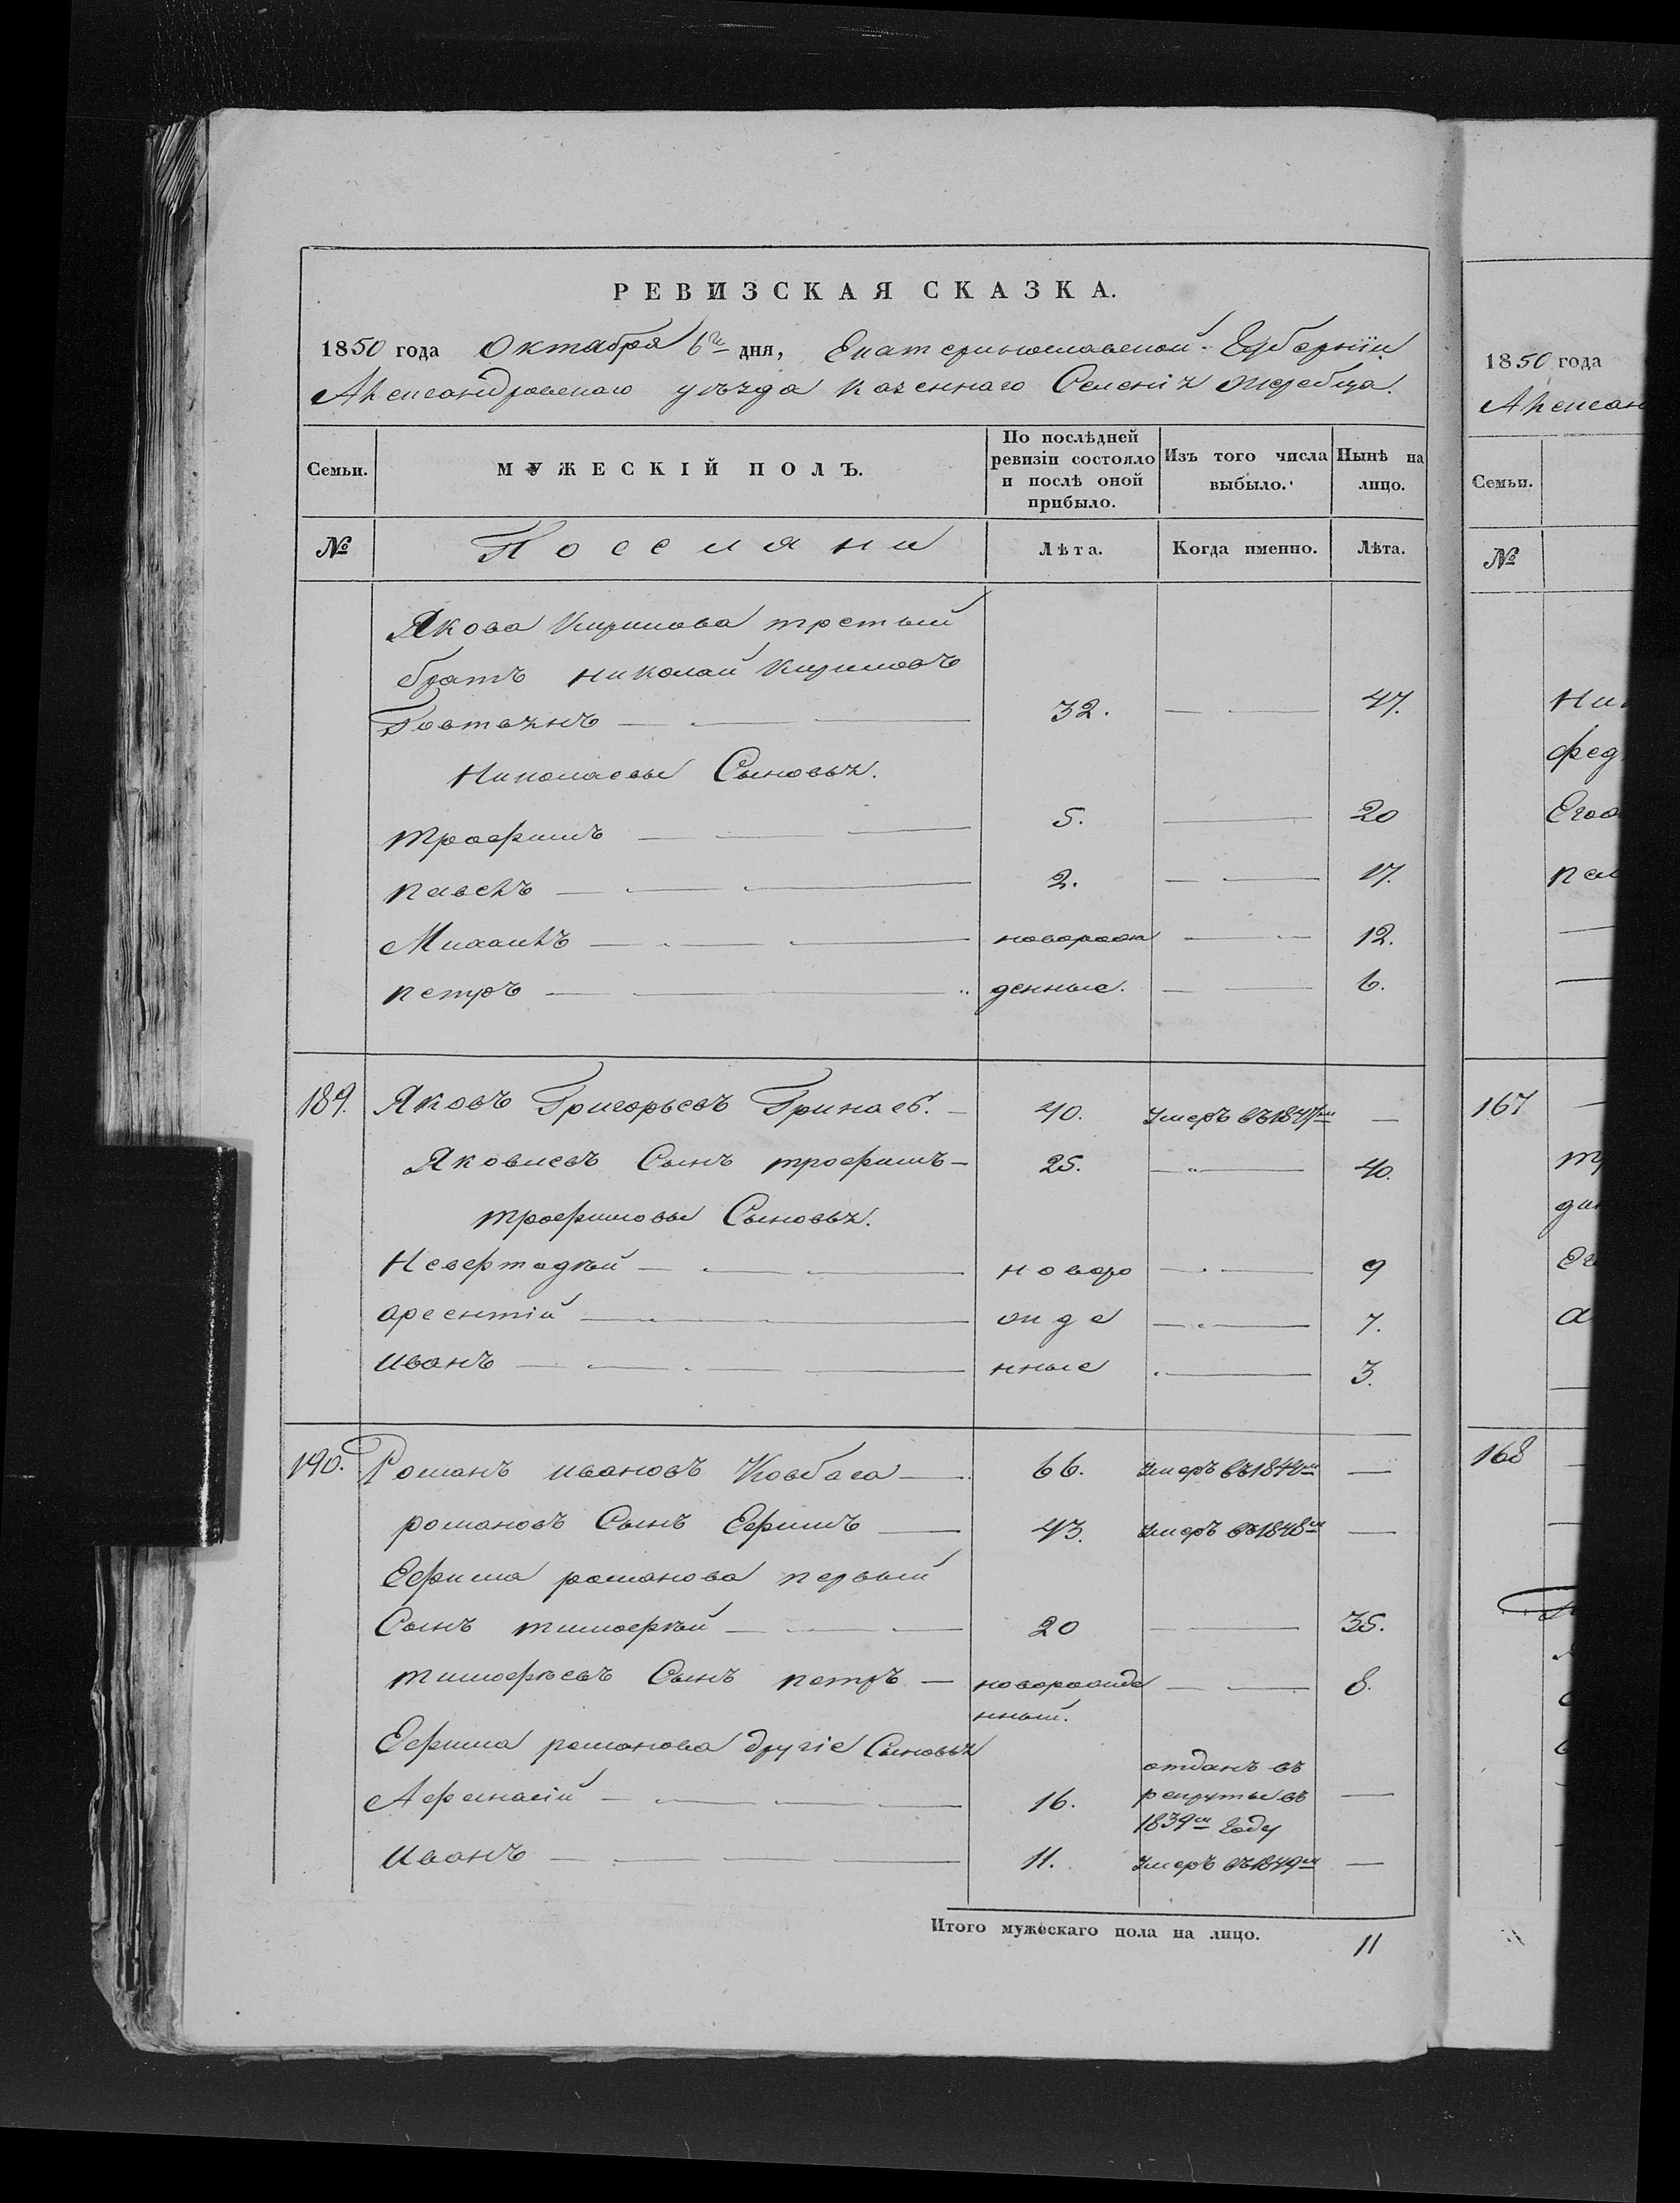 РЕВИЗСКАЯ СКАЗКА.
1850 года Октября 6го дня, Екатеринославской Губерніи
Александровскаго уѣзда казеннаго Селенія Жеребца.
Семьи. МУЖЕСКІЙ ПОЛЪ. По послѣдней ревизіи состояло и послѣ оной прибыло. Изъ того числа выбыло. Нынѣ на лицо.
№ Поселяни Лѣта. Когда именно. Лѣта.
Якова Кирилова третьий
братъ николай Кириловъ
Товтвянъ 32. 47.
Николаевы Сыновья.
трофимъ 5. 20
павелъ 2. 17.
Михаилъ новорож 12.
петръ денные. 6.
189. Яковъ Григорьевъ Гринасъ. 40. Умеръ въ 1847м —
Яковлевъ Сынъ трофимъ 25. 40.
трофимовы Сыновья.
новоро 9
арсентій жде 7.
иванъ нные 3.
190. Романъ ивановъ Ковбаса 66. умеръ въ 1844м —
романовъ Сынъ Ефимъ 43. умеръ въ 1848м —
Ефима романова первый
Сынъ тимофѣй 20 35.
тимофѣевъ Сынъ петръ новорожде 8.
нный.
Ефима романова другіе Сыновья
отданъ въ
Афанасій 16. рекруты въ —
1839м Году
иванъ 11. умеръ въ 1849м —
Итого мужескаго пола на лицо. 11
1850 года
Алексан
Семьи.
№
Ник
фед
Его
пав
167
168